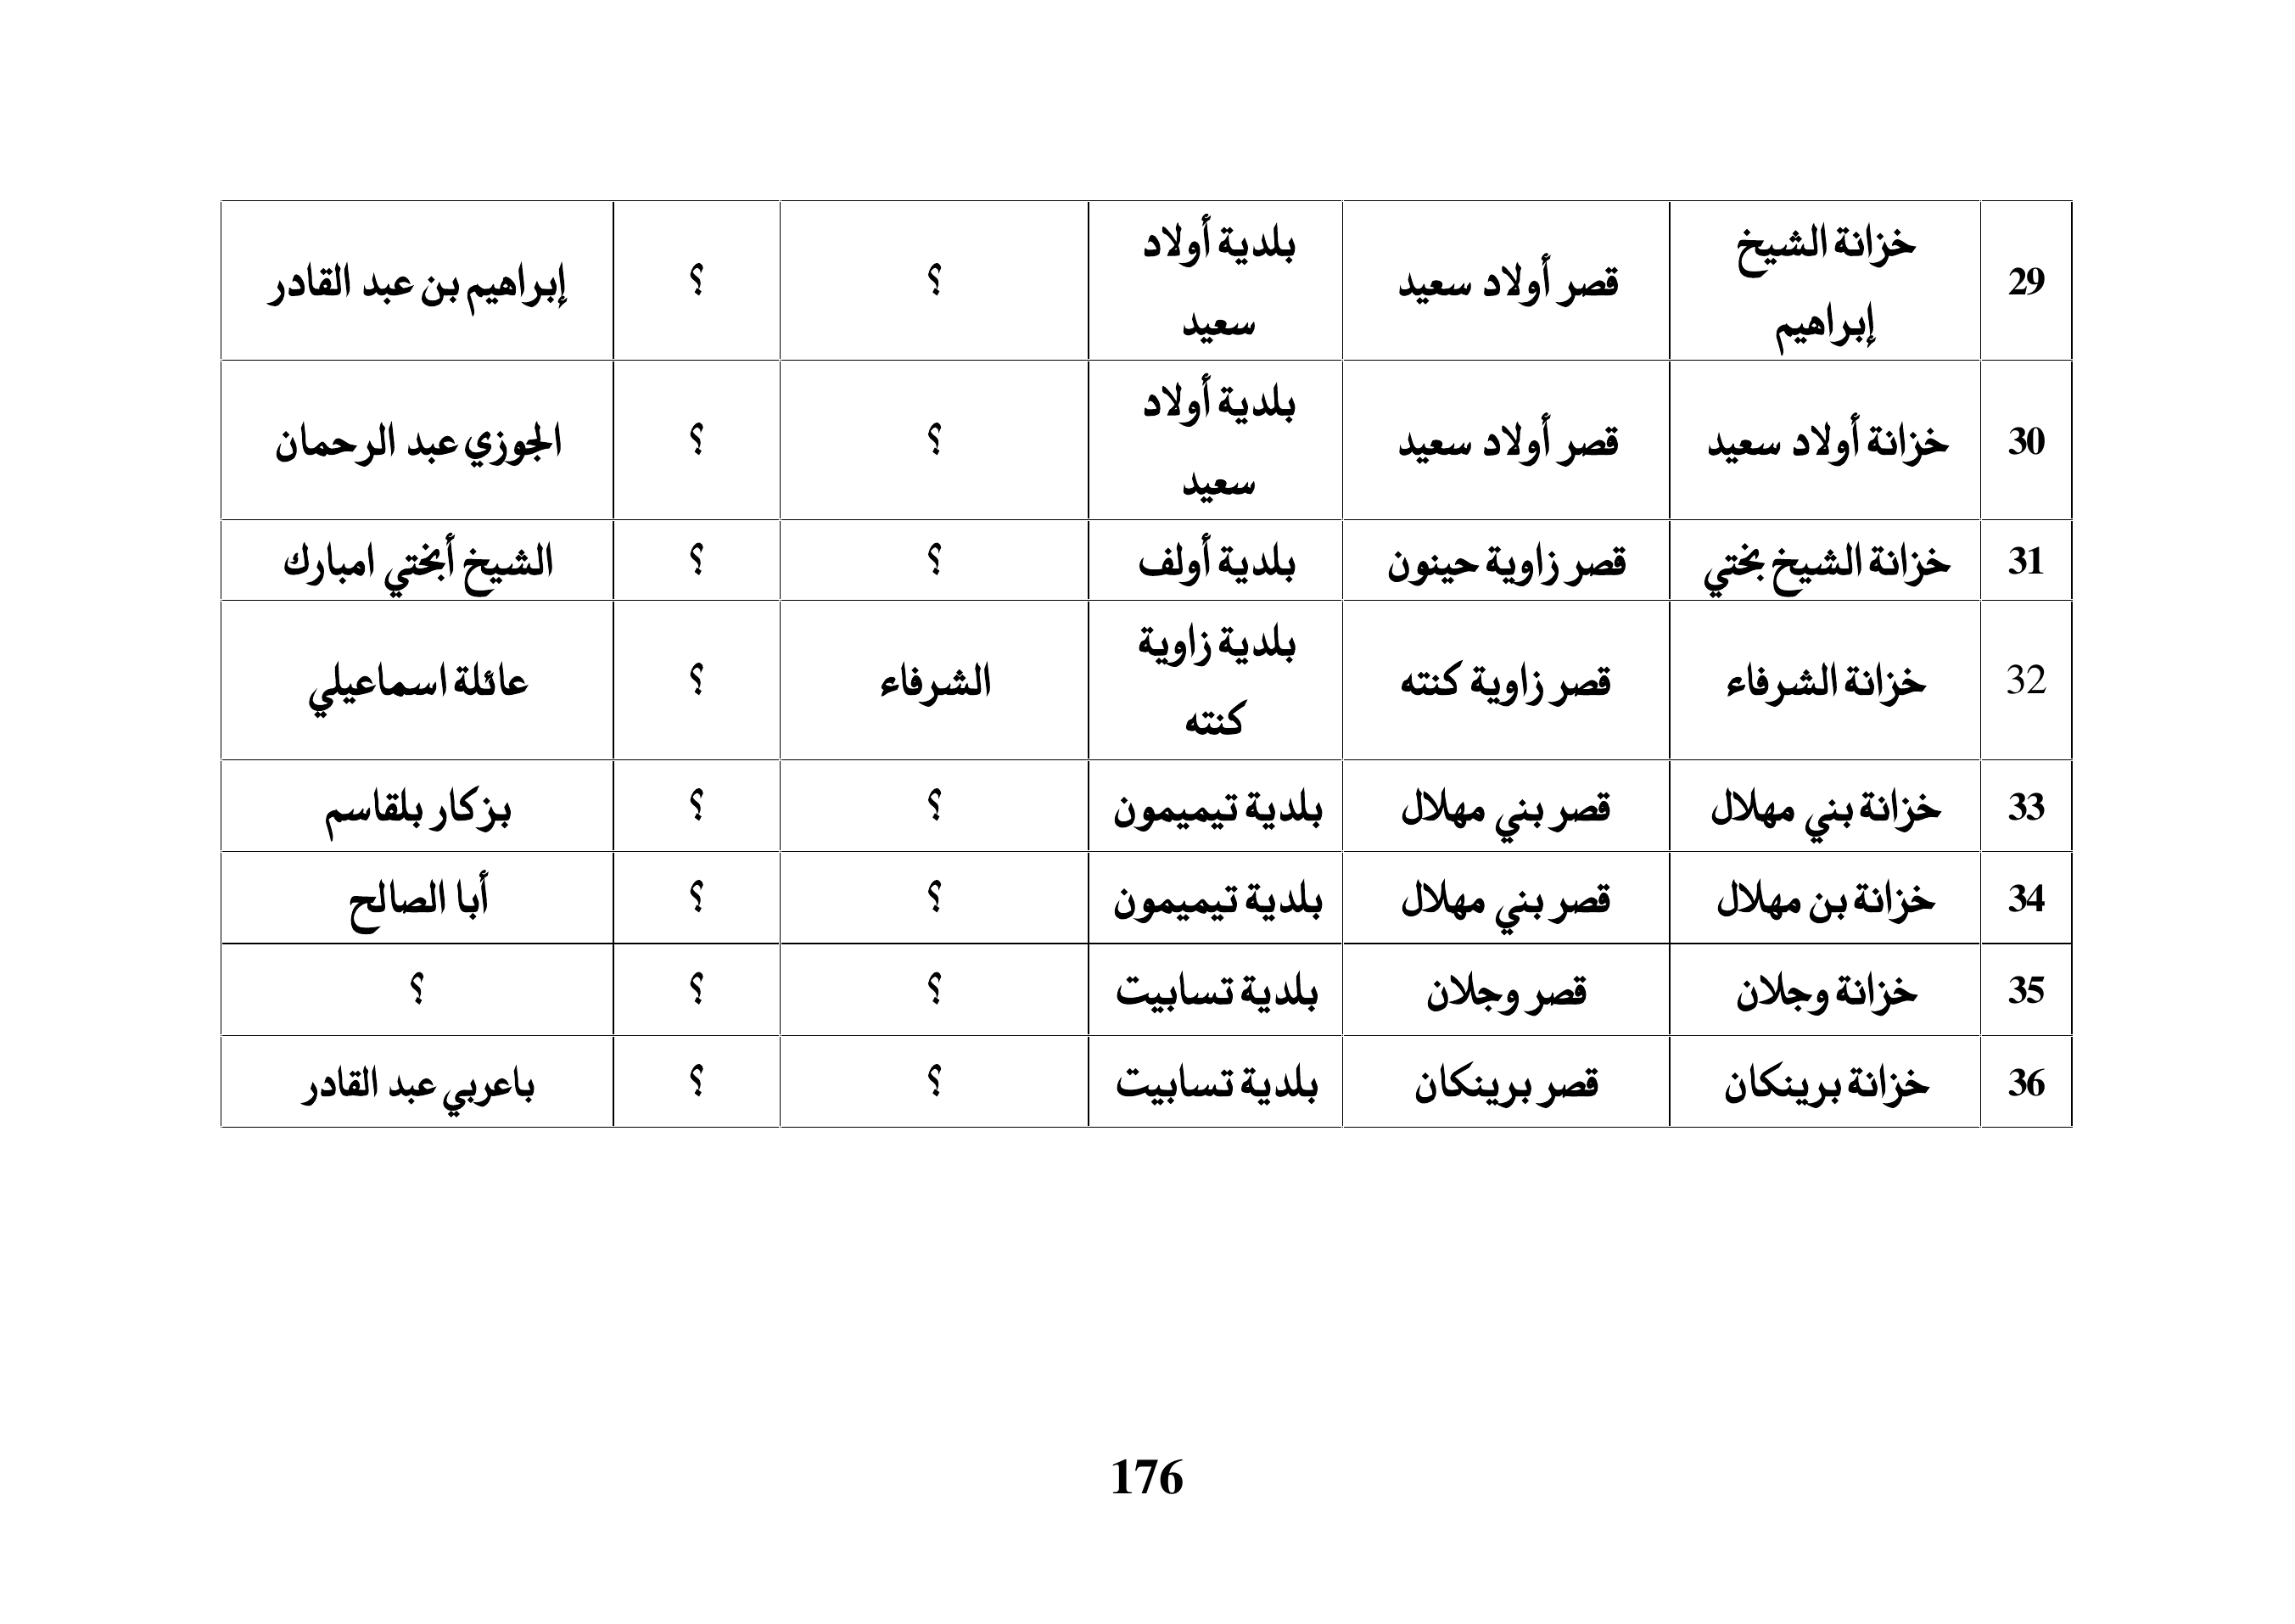 29 خزانة الشيخ إبراهيم قصر أولاد سعيد بلدية أولاد سعيد ؟ ؟ إبراهيم بن عبد القادر
30 خزانة أولاد سعيد قصر أولاد سعيد بلدية أولاد سعيد ؟ ؟ الجوزي عبد الرحمان
31 خزانة الشيخ بختي قصر زاوية حينون بلدية أولف ؟ ؟ الشيخ أبختي امبارك
32 خزانة الشرفاء قصر زاوية كنته بلدية زاوية كنته الشرفاء ؟ عائلة اسماعيلي
33 خزانة بني مهلال قصر بني مهلال بلدية تيميمون ؟ ؟ بزكار بلقاسم
34 خزانة بن مهلال قصر بني مهلال بلدية تيميمون ؟ ؟ أبا الصالح
35 خزانة وجلان قصر وجلان بلدية تسابيت ؟ ؟ ؟
36 خزانة برينكان قصر برينكان بلدية تسابيت ؟ ؟ باعربي عبد القادر
176